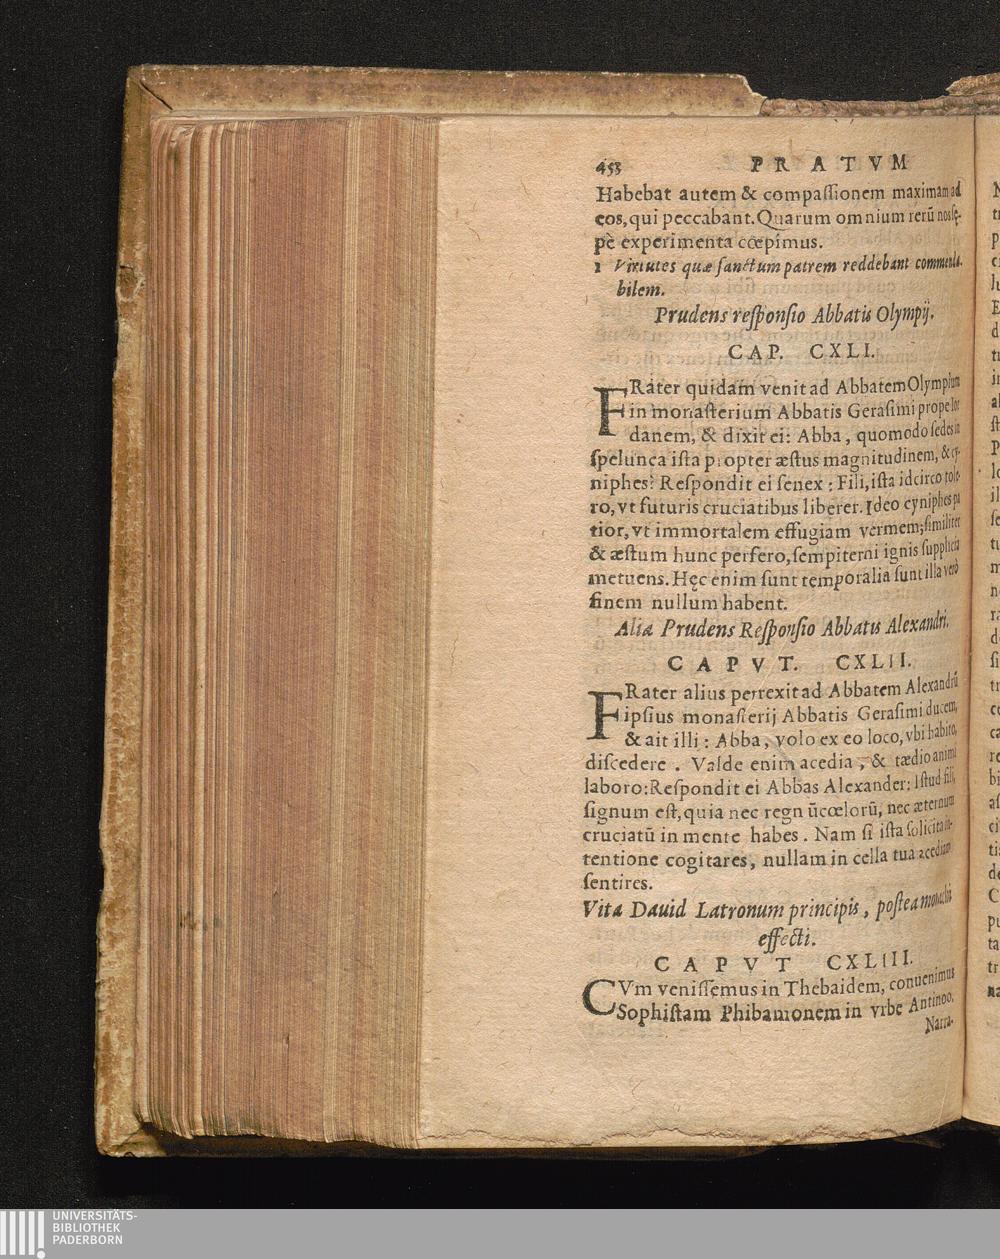 453 PRATVM
Habebat autem & compaſſionem maximam ad
eos, qui peccabant. Quarum omnium rerū nos ſę-
pè experimenta cœpimus.
1 Virtutes quæ ſanctum patrem reddebant commenda-
bilem.
Prudens reſponſio Abbatis Olympij.
CAP. CXLI.
FRater quidam venit ad Abbatem Olympium
in monaſterium Abbatis Geraſimi prope Ior
danem, & dixit ei: Abba, quomodo ſedes in
ſpelunca iſta propter æſtus magnitudinem, & cy-
niphes? Reſpondit ei ſenex: Fili, iſta idcirco tole-
ro, vt futuris cruciatibus liberer. Ideo cyniphes pa
tior, vt immortalem effugiam vermem; ſimiliter
& æſtum hunc perfero, ſempiterni ignis ſupplicia
metuens. Hęc enim ſunt temporalia ſunt illa verò
finem nullum habent.
Alia Prudens Reſponſio Abbatis Alexandri.
CAPVT. CXLII.
FRater alius perrexit ad Abbatem Alexandrū
ipſius monaſterij Abbatis Geraſimi ducem,
& ait illi: Abba, volo ex eo loco, vbi habito,
diſcedere. Valde enim acedia, & tædio animi
laboro: Reſpondit ei Abbas Alexander: Iſtud fili,
ſignum eſt, quia nec regn ūcœlorū, nec æternum
cruciatū in mente habes. Nam ſi iſta ſolicita in-
tentione cogitares, nullam in cella tua acediam
ſentires.
Vita Dauid Latronum principis, poſtea monachi
effecti.
CAPVT CXLIII.
CVm veniſſemus in Thebaidem, conuenimus
Sophiſtam Phibamonem in vrbe Antinoo.
Narra-
UNIVERSITÄTS-
BIBLIOTHEK
PADERBORN